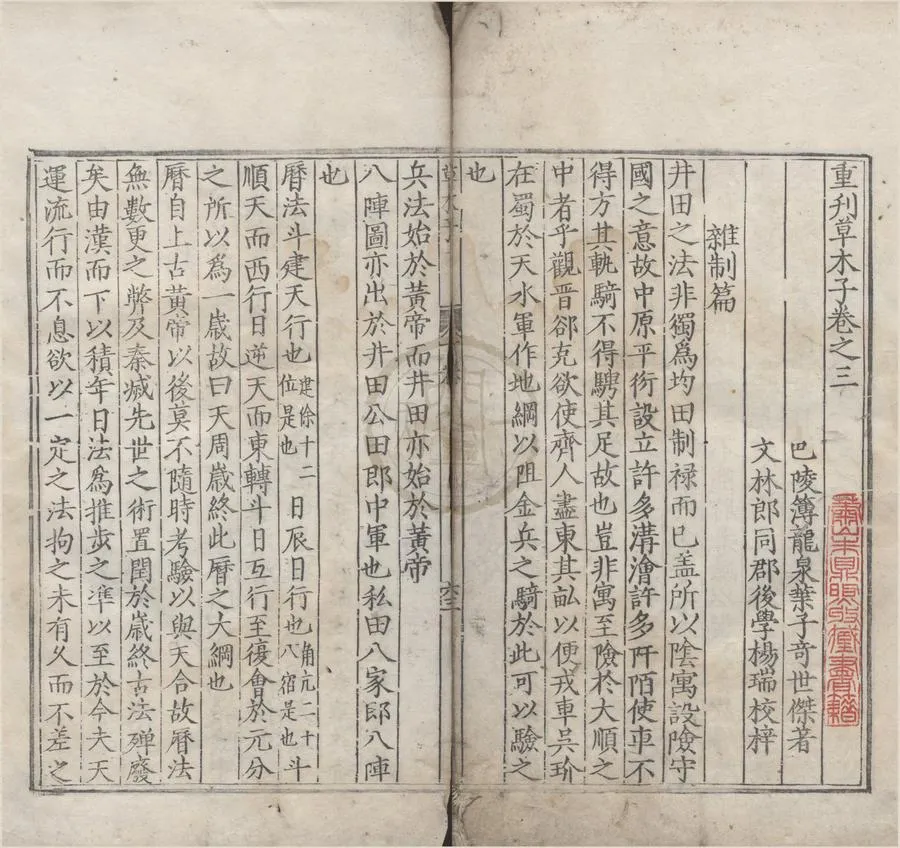 重刋草木子卷之三
巴陵簿龍泉葉子奇世傑著
文林郎同郡後學楊瑞校梓
雜制篇
井田之法非獨為均田制禄而已盖所以陰寓設險守
國之意故中原平衍設立許多溝澮許多阡陌使車不
得方其軌騎不得騁其足故也豈非寓至險於大順之
中者乎觀晉郤克欲使齊人盡東其畆以便戎車吴玠
在蜀於天水軍作地綱以阻金兵之騎於此可以驗之
也
草木子
六三
兵法始於黃帝而井田亦始於黃帝
八陣圖亦出於井田公田郎中軍也私田八家郎八陣
也
曆法斗建天行也建除十二位是也日辰日行也角亢二十八宿是也斗
順天而西行日逆天而東轉斗日互行至復會於元分
之所以爲一歲故曰天周歲終此曆之大綱也
曆自上古黃帝以後莫不隨時考驗以與天合故曆法
無數更之弊及秦滅先世之術置閏於歲終古法殫廢
矣由漢而下以積年日法爲推步之凖以至於今夫天
運流行而不息欲以一定之法拘之未有乆而不差之